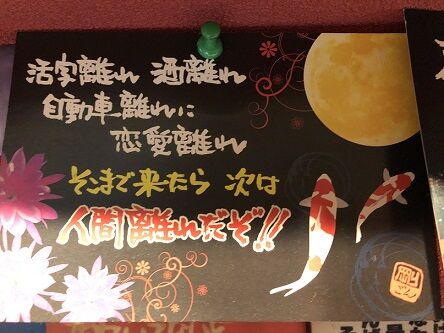 活字離れ 酒離れ
自動車離れに
恋愛離れ
そこまで来たら 次は
人間離れだぞ!!